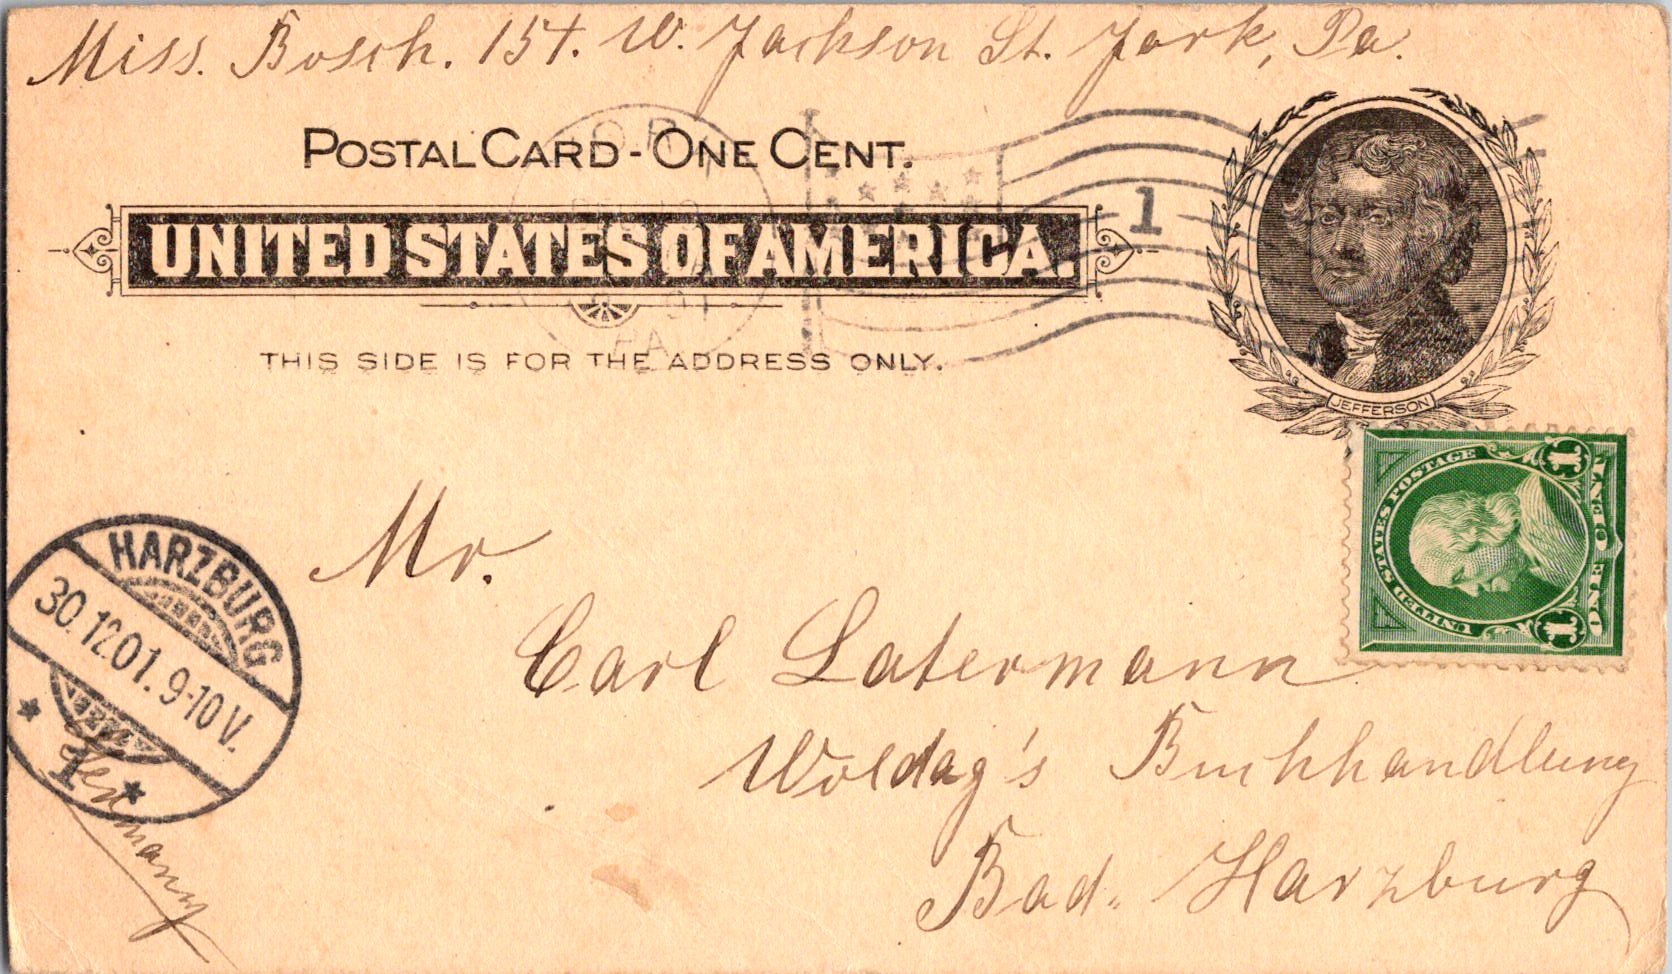 Miss. Bosch. 154. W. Jackson St. York, Pa.
POSTAL CARD - ONE CENT.
UNITED STATES OF AMERICA.
1
THIS SIDE IS FOR THE ADDRESS ONLY.
PA
JEFFERSON
UNITED STATES POSTAGE
1 1
ONE CENT
HARZBURG
30.12.01. 9-10 V.
* 1 *
Mr.
Carl Latermann
Woldag's Buchhandlung
Bad. Harzburg
Germany